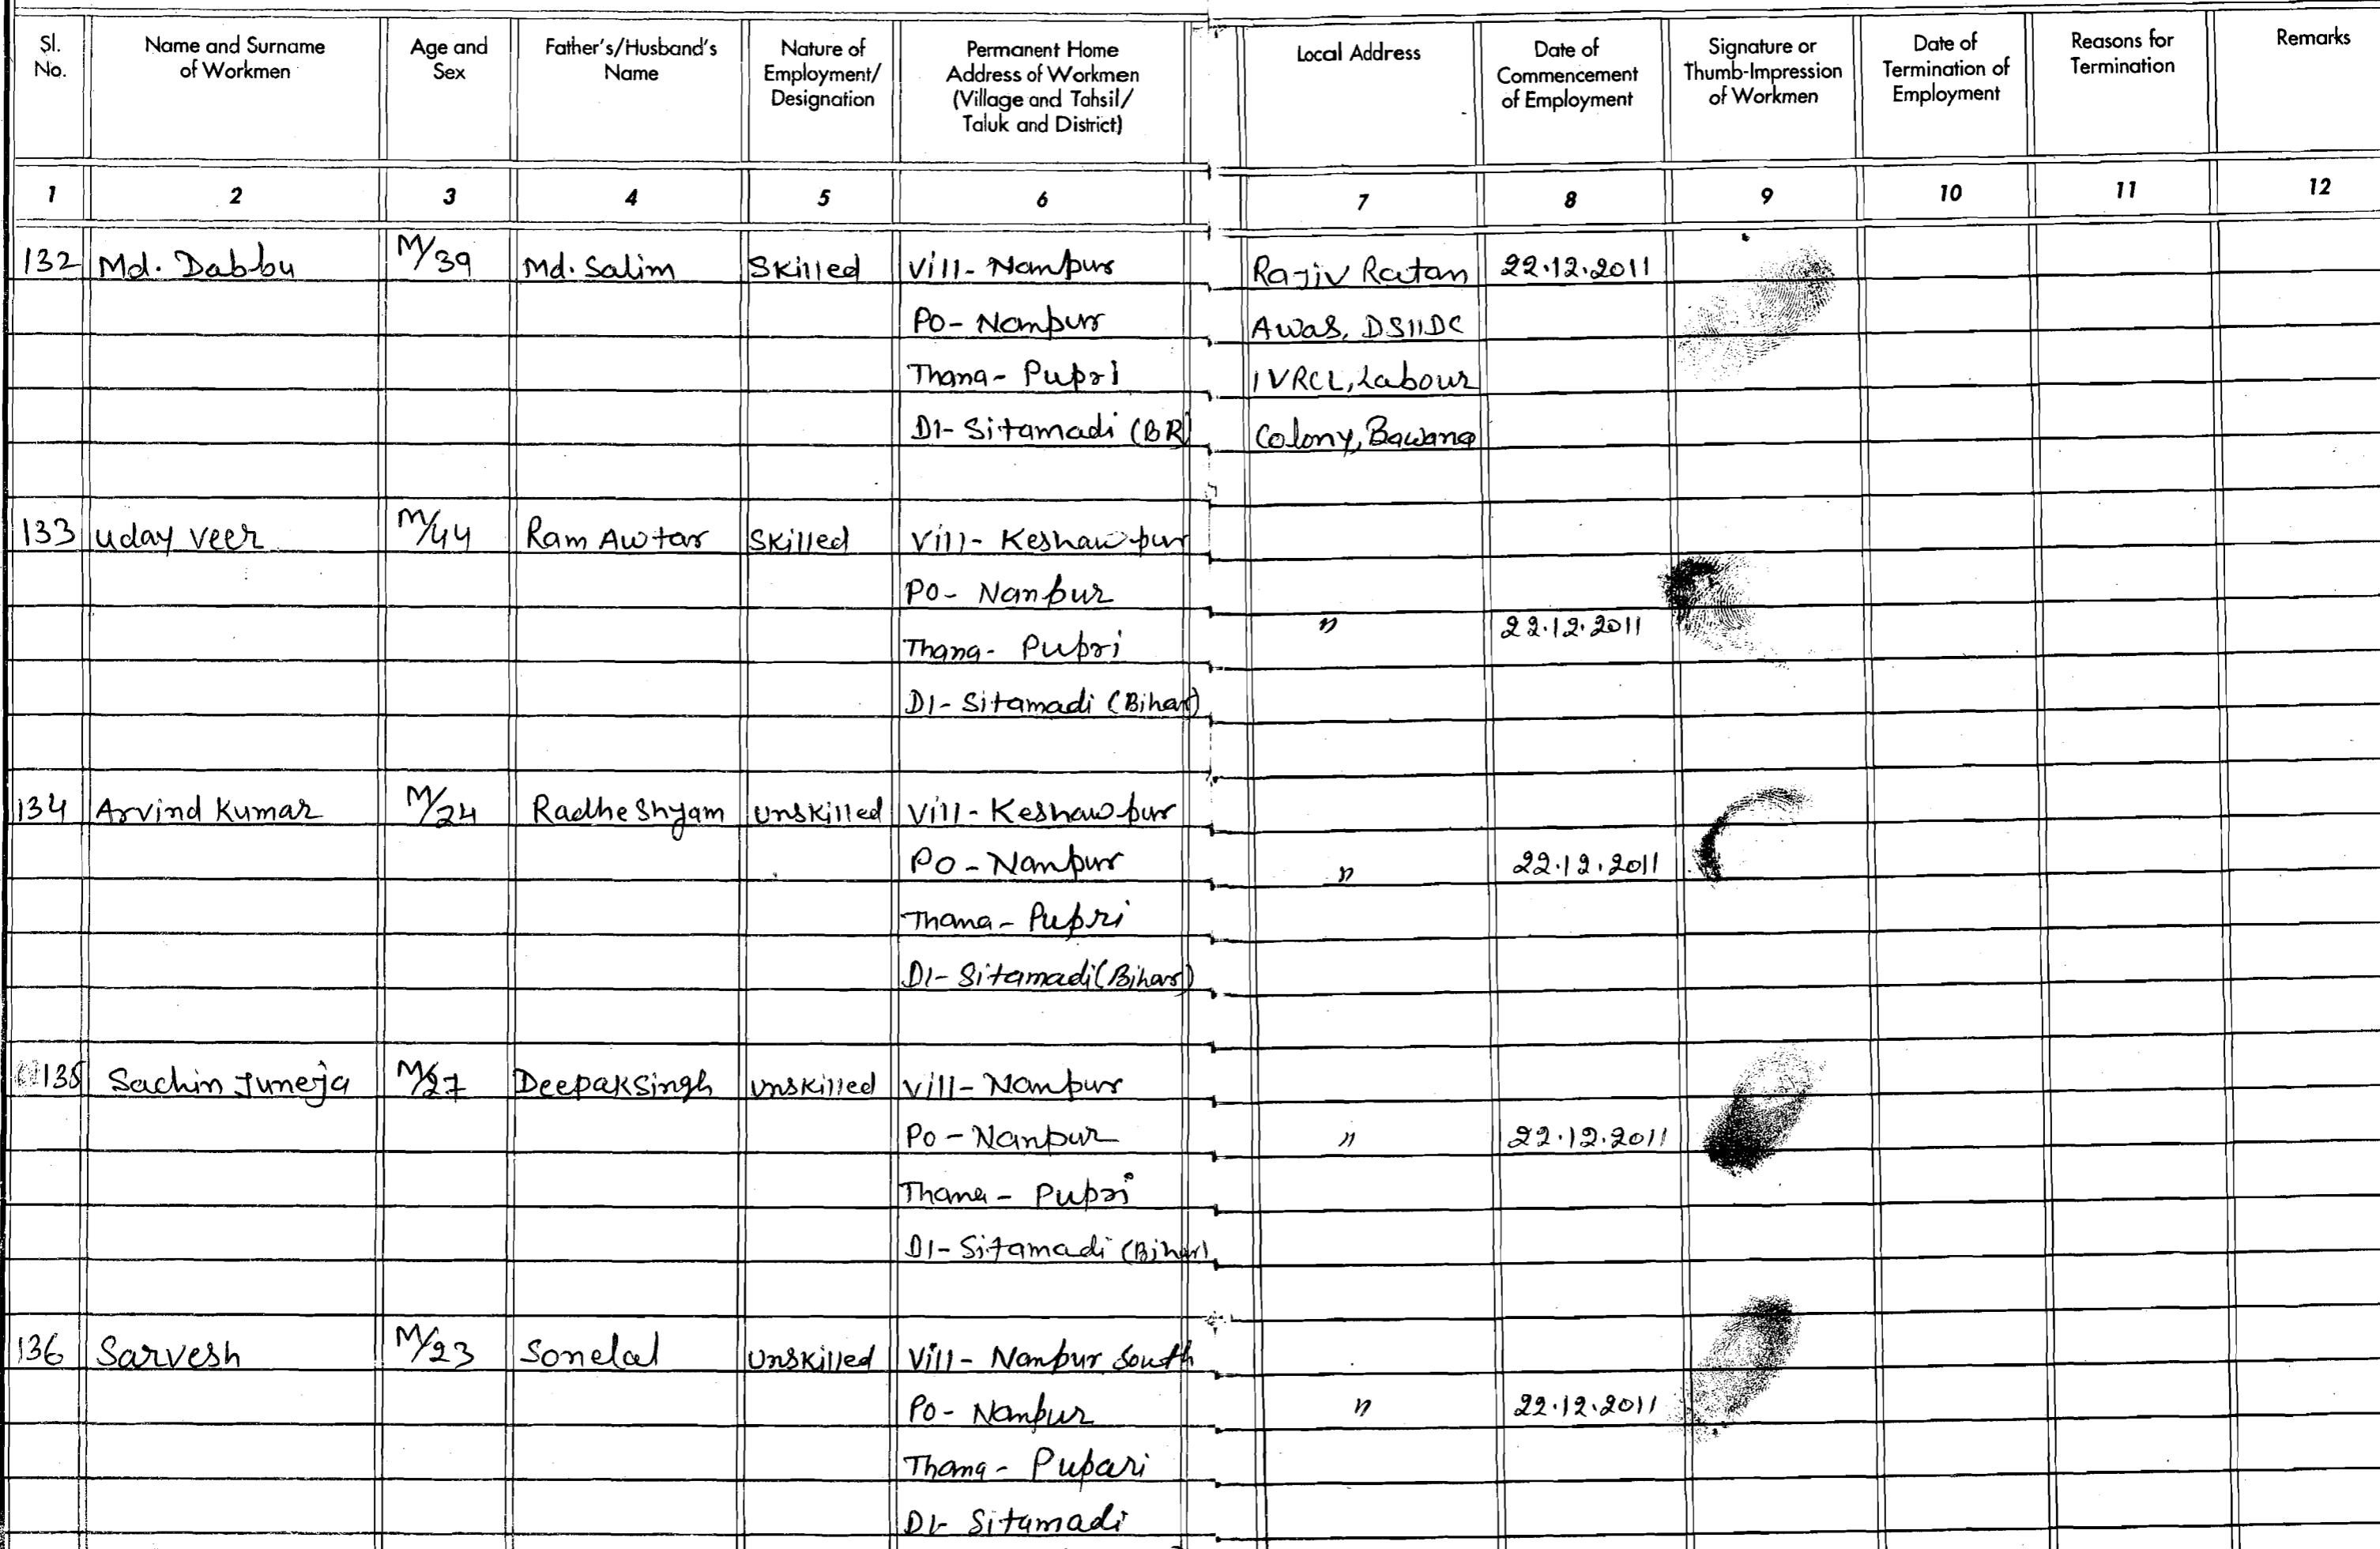 Sl. No. Name and Surname of Workmen Age and Sex Father's/Husband's Name Nature of Employment/ Designation Permanent Home Address of Workmen (Village and Tahsil/ Taluk and District) Local Address Date of Commencement of Employment Signature or Thumb-Impression of Workmen Date of Termination of Employment Reasons for Termination Remarks
1 2 3 4 5 6 7 8 9 10 11 12
132 Md. Dabbu M/39 Md. Salim Skilled Vill- Nanpur Rajiv Ratan 22.12.2011
PO- Nanpur Awas, DSIIDC
Thana- Pupri IVRCL, Labour
DI- Sitamadi (BR) Colony, Bawana
133 Uday Veer M/44 Ram Awtar Skilled Vill- Keshawpur
PO- Nanpur
Thana- Pupri " 22.12.2011
DI- Sitamadi (Bihar)
134 Arvind Kumar M/24 Radhe Shyam Unskilled Vill- Keshawpur
PO- Nanpur " 22.12.2011
Thana- Pupri
DI- Sitamadi (Bihar)
135 Sachin Juneja M/27 Deepak Singh Unskilled Vill- Nanpur
Po- Nanpur " 22.12.2011
Thana- Pupri
DI- Sitamadi (Bihar)
136 Sarvesh M/23 Sonelal Unskilled Vill- Nanpur South
Po- Nanpur " 22.12.2011
Thana- Pupari
DI- Sitamadi